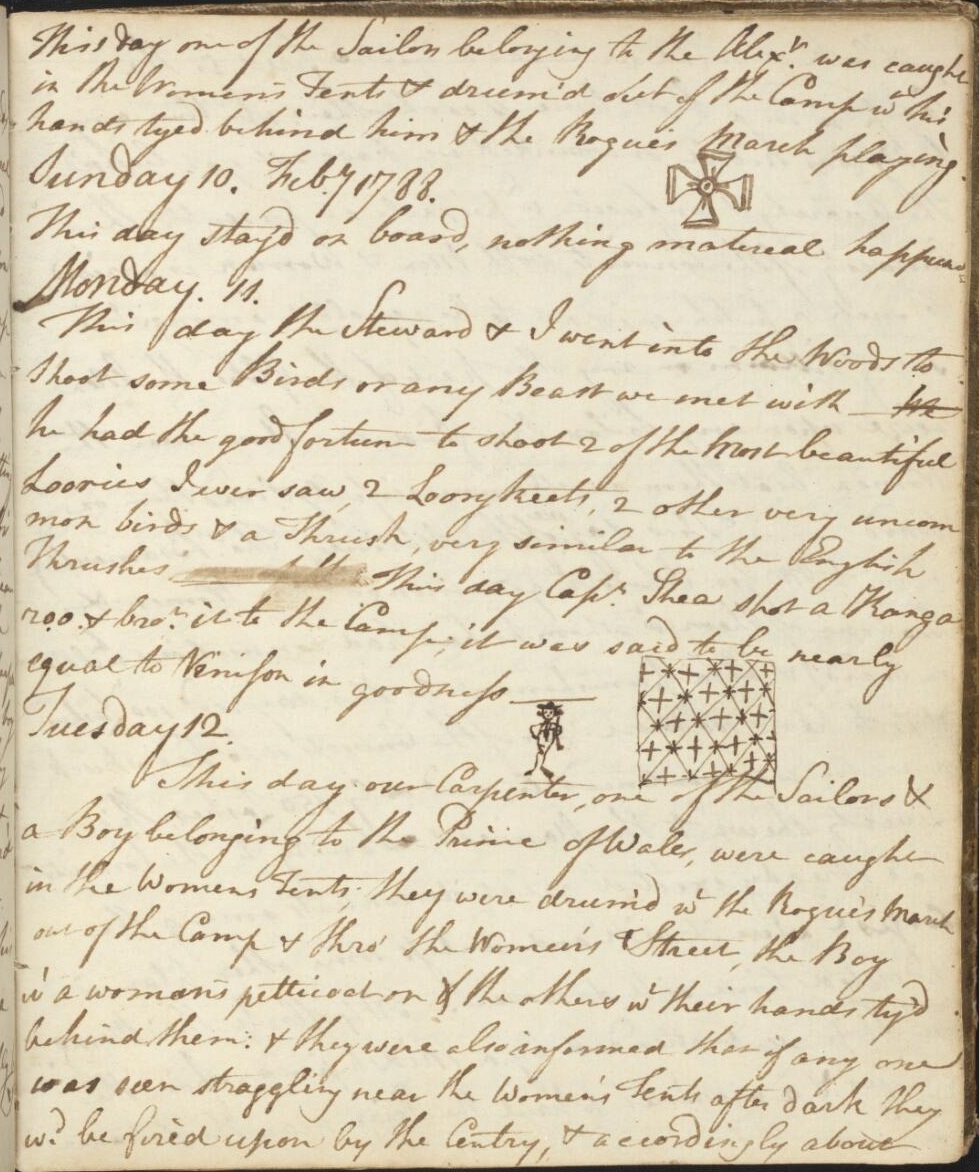 This day one of the Sailors belonging to the Alexr. was caught
in the Women's Tents & drum'd out of the Camp wh his
hands tyed behind him & the Rogue's March playing.
Sunday 10. Feby 1788.
This day stay'd on board, nothing matereal happen'd
Monday. 11.
This day the Steward & I went into the Woods to
shoot some Birds or any Beast we met with
he had the good fortune to shoot 2 of the most beautiful
Loories I ever saw, 2 Loorykeets, 2 other very uncom
mon birds & a Thrush, very similar to the English
Thrushes This day Capt. Shea shot a Kanga
roo. & bro't it to the Camp; it was said to be nearly
equal to Venison in goodness
Tuesday 12.
This day our Carpenter, one of the Sailors &
a Boy belonging to the Prince of Wales, were caught
in the Womens Tents; they were drum'd wh the Rogue's March
out of the Camp & thro' the Women's Street, the Boy
wh a woman's petticoat on & the others wh their hands ty'd
behind them: & they were also informed that if any one
was seen straggling near the Women's Tents after dark they
wd. be fired upon by the Centry, & accordingly about